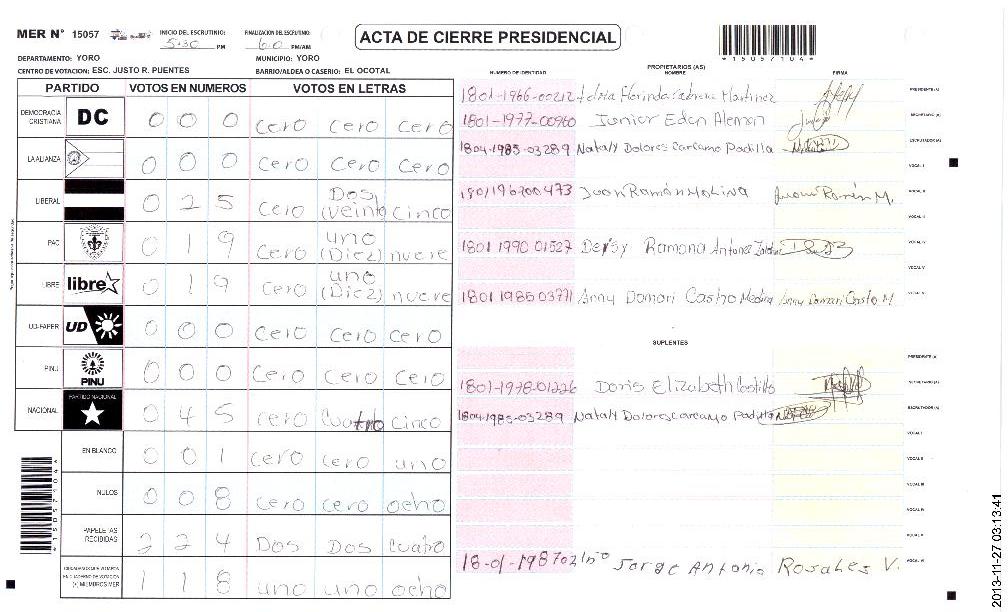 MER N° 15057
INICIO DEL ESCRUTINIO: 5:30 PM
FINALIZACION DEL ESCRUTINIO: 6:0 PM/AM
ACTA DE CIERRE PRESIDENCIAL
*15057104*
DEPARTAMENTO: YORO MUNICIPIO: YORO
CENTRO DE VOTACION: ESC. JUSTO R. PUENTES BARRIO/ALDEA O CASERIO: EL OCOTAL
PARTIDO VOTOS EN NUMEROS VOTOS EN LETRAS
DEMOCRACIA CRISTIANA DC 0 0 0 cero cero cero
LA ALIANZA 0 0 0 cero cero cero
LIBERAL 0 2 5 cero Dos (veinte) cinco
PAC 0 1 9 cero uno (Diez) nueve
LIBRE libre 0 1 9 cero uno (Diez) nueve
UD-FAPER UD 0 0 0 cero cero cero
PINU PINU 0 0 0 cero cero cero
NACIONAL PARTIDO NACIONAL 0 4 5 cero cuatro cinco
EN BLANCO 0 0 1 cero cero uno
NULOS 0 0 8 cero cero ocho
PAPELETAS RECIBIDAS 2 2 4 Dos Dos cuatro
CIUDADANOS QUE VOTARON EN CUADERNO DE VOTACION (+) MIEMBROS MER 1 1 8 uno uno ocho
PROPIETARIOS (AS)
NUMERO DE IDENTIDAD NOMBRE FIRMA
1801-1966-00212 Martinez PRESIDENTE (A)
1801-1977-00960 Junior Eden Aleman SECRETARIO (A)
1804-1985-03289 Nataly Dolores Carcamo Padilla ESCRUTADOR (A)
VOCAL I
1801196700473 Juan Ramón Molina Juan Ramón M. VOCAL II
VOCAL III
1801 1990 01527 Deysy Ramona Antonia VOCAL IV
VOCAL V
1801 1985 03771 Anny Damari Castro Medina Anny Damari Castro M. VOCAL VI
SUPLENTES
PRESIDENTE (A)
1801-1978-01226 Doris Elizabeth Castillo SECRETARIO (A)
1804-1985-03289 Nataly Dolores Carcamo Padilla ESCRUTADOR (A)
VOCAL I
VOCAL II
VOCAL III
VOCAL IV
VOCAL V
Jorge Antonio Rosales V. VOCAL VI
*15057104*
2013-11-27 03:13:41